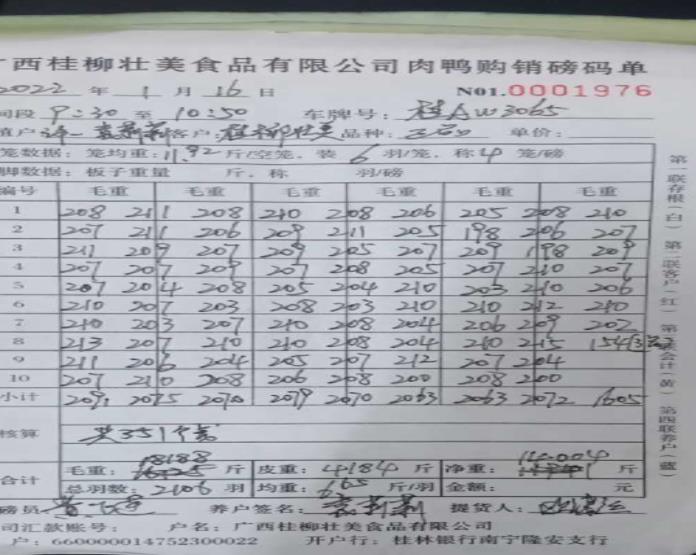 广西桂柳壮美食品有限公司肉鸭购销磅码单
2022 年 1 月 16 日 NO1.0001976
间段 9:30 至 10:50 车牌号: 桂AW3065
客户: 桂柳壮美 品种: 单价:
笼数据: 笼均重: 11.92 斤/空笼, 装 6 羽/笼, 称 4 笼/磅
脚数据: 板子重量 斤, 称 羽/磅
编号 毛重 毛重 毛重 毛重 毛重 毛重
1 208 211 208 210 208 206 205 208 210
2 207 211 206 209 211 205 198 206 207
3 211 209 207 209 205 207 209 198 209
4 207 207 209 207 208 205 207 210 207
5 207 204 208 205 204 210 203 210 206
6 210 207 203 208 203 210 210 212 210
7 210 203 207 210 208 204 206 209 202
8 213 207 210 210 208 204 210 215 154
9 211 206 204 205 207 212 207 204
10 207 210 208 206 208 200 208 200
小计 2091 2075 2070 2079 2070 2063 2063 2072 1605
核算 共351个笼
18188 14004
合计 毛重: 斤 皮重: 4184 斤 净重: 斤
总羽数: 2106 羽 均重: 6.65 斤/羽 金额: 元
磅员 养户签名: 提货人:
司汇款账号: 户名: 广西桂柳壮美食品有限公司
户: 660000014752300022 开户行: 桂林银行南宁隆安支行
第一联存根(白) 第二联客户(红) 第三联会计(黄) 第四联养户(蓝)